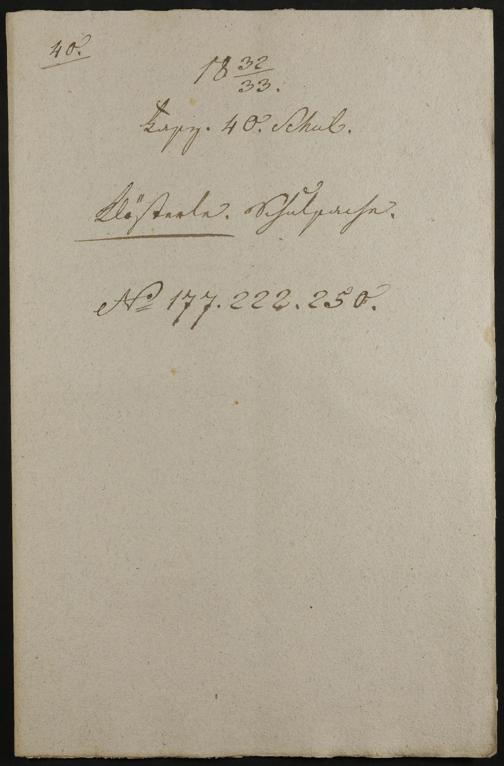 40.
18 32/33.
Fasz. 40. Schul.
Klösterle. Schulsache.
No 177. 222. 250.